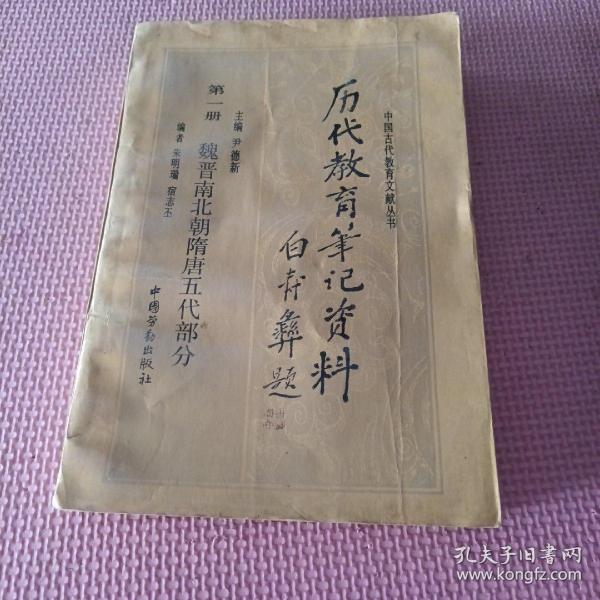 中国古代教育文献丛书
历代教育筆记资料
白寿彝题
主编 尹德新
第一册 魏晋南北朝隋唐五代部分
编者 朱明瑙 宿志丕
中國劳動出版社
孔夫子旧書网
www.kongfz.com